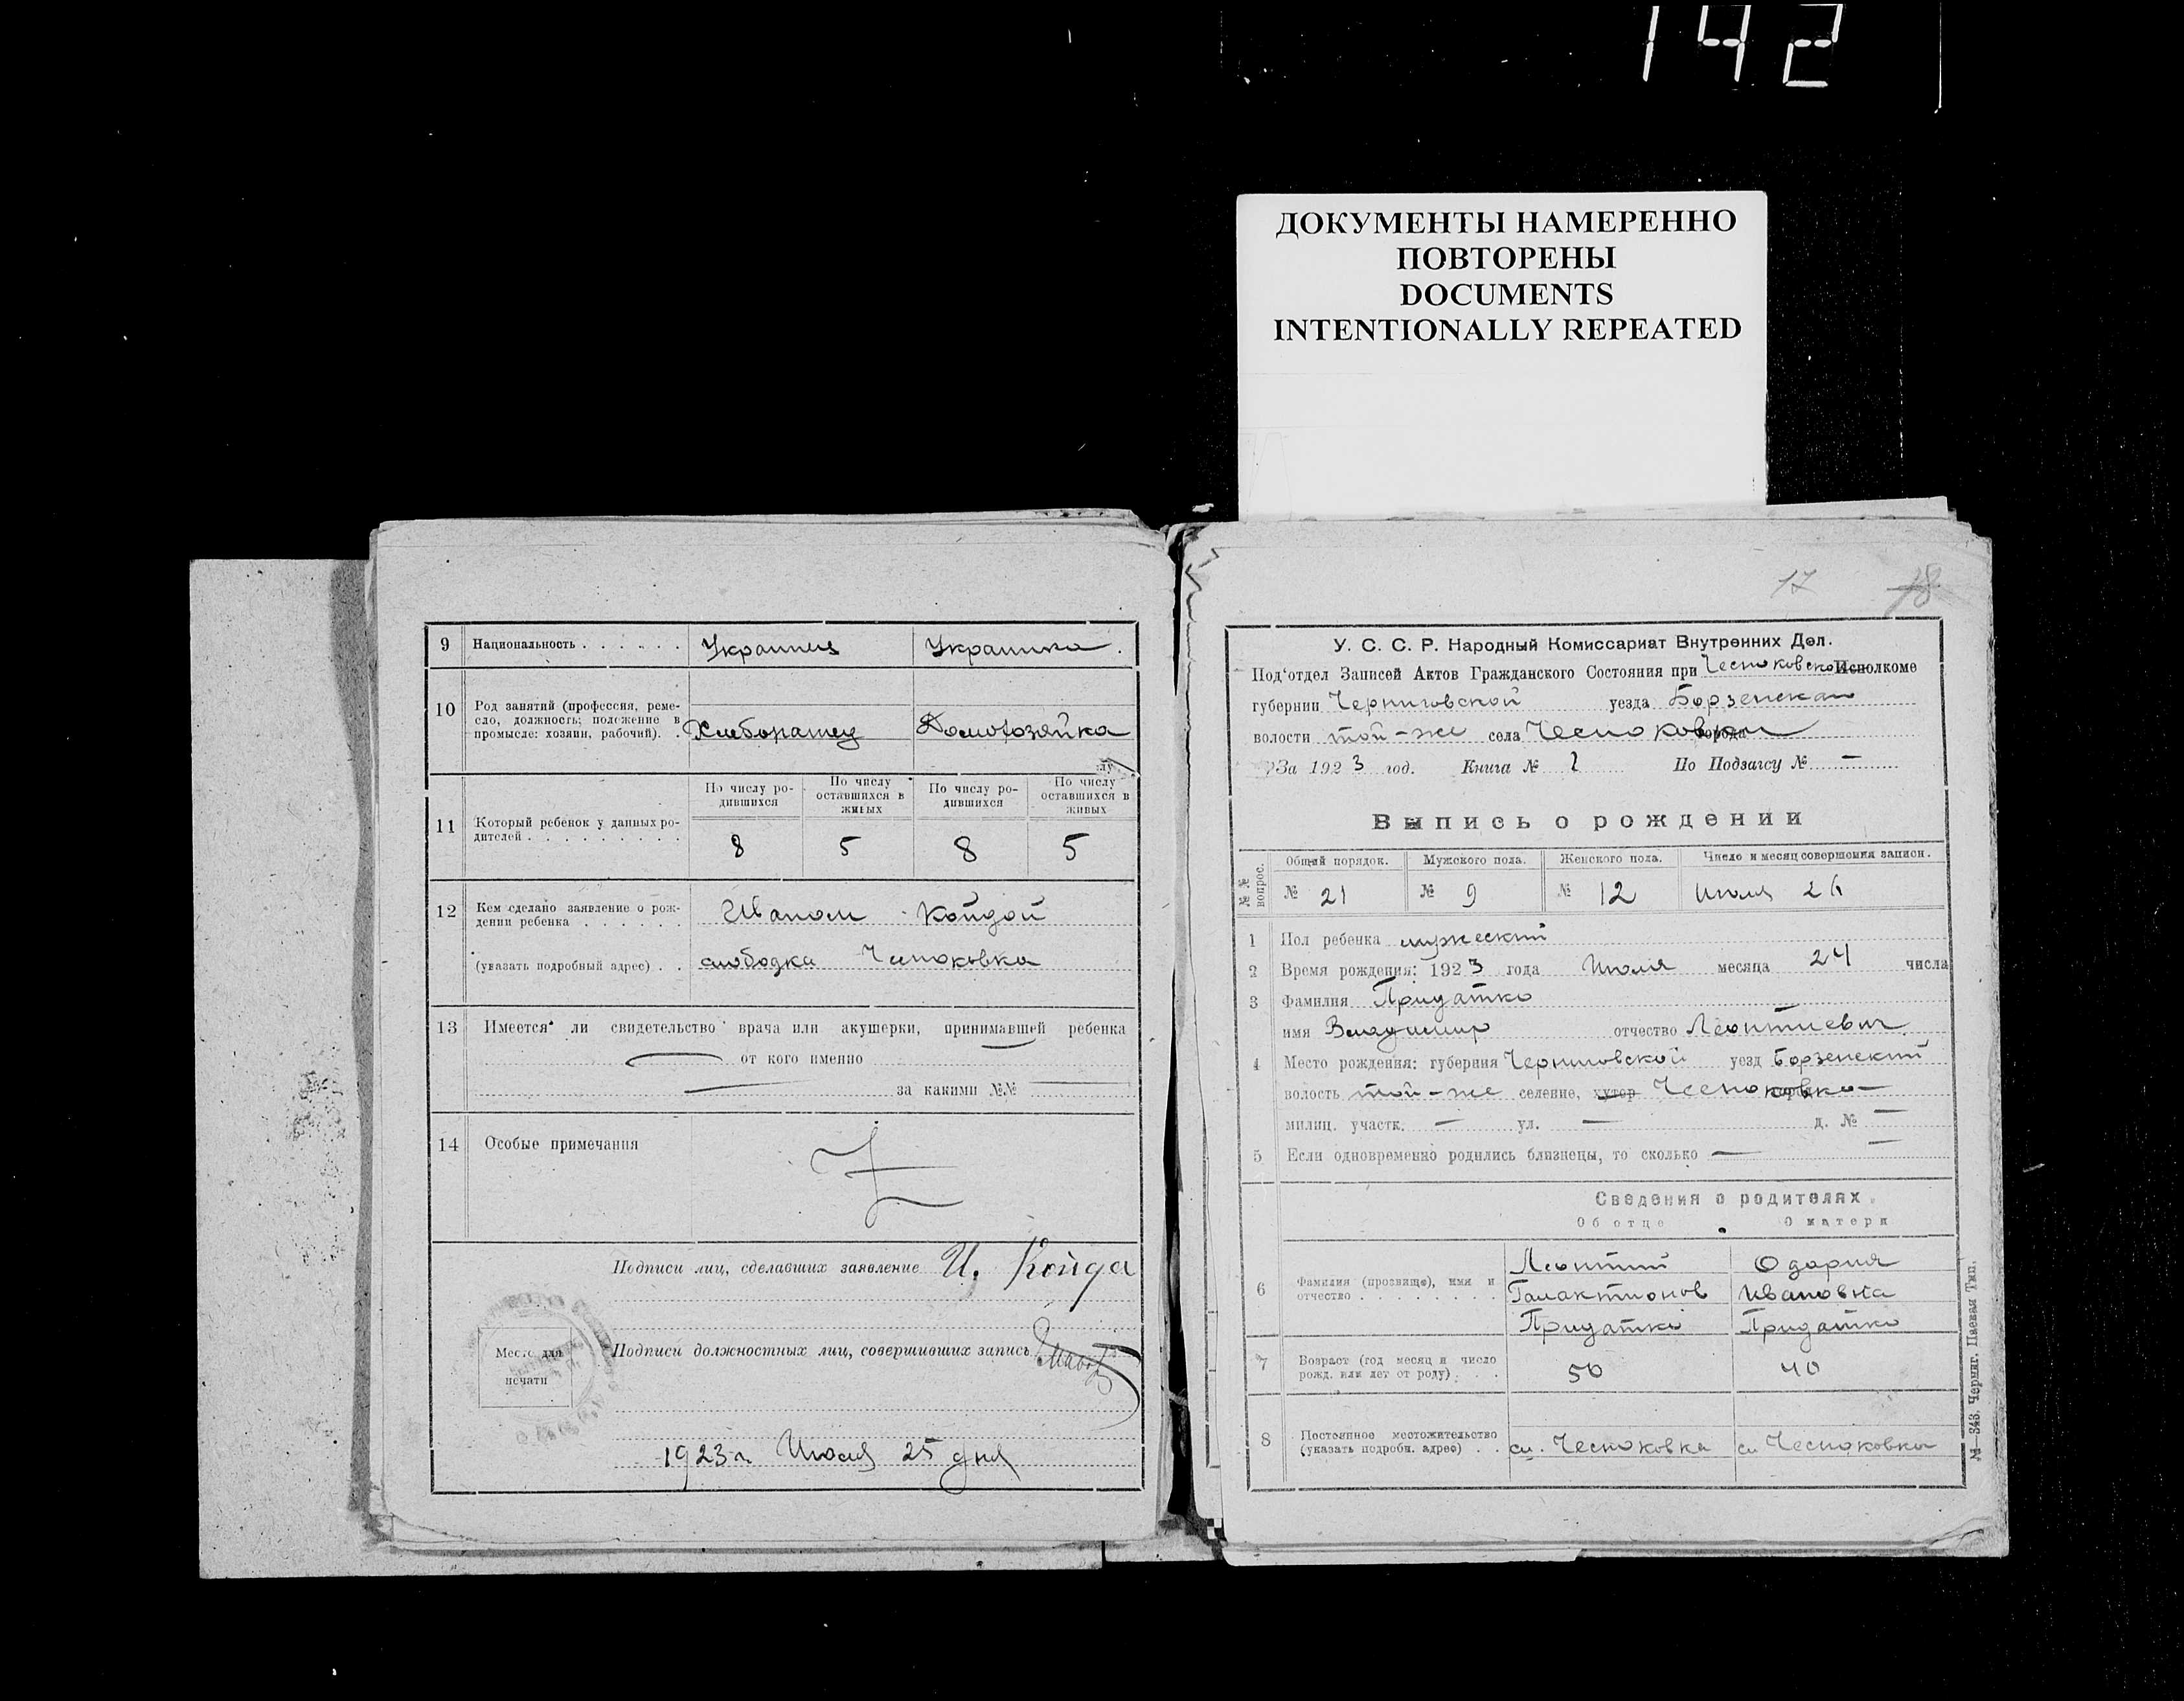 142
ДОКУМЕНТЫ НАМЕРЕННО
ПОВТОРЕНЫ
DOCUMENTS
INTENTIONALLY REPEATED
9 Национальность Украинец Украинка.
10 Род занятий (профессия, реме-
сло, должность; положение в
промысле: хозяин, рабочий). Хлеборатец Домохозяйка
По числу ро-
дившихся
По числу
оставшихся в
живых
По числу ро-
дившихся
По числу
оставшихся в
живых
11 Который ребенок у данных ро-
дителей
8 5 8 5
12 Кем сделано заявление о рож-
дении ребенка Иваном Койдой
(указать подробный адрес) слободка Чесноковка
13 Имеется ли свидетельство врача или акушерки, принимавшей ребенка
— от кого именно —
— за какими №№ —
14 Особые примечания
Подписи лиц, сделавших заявление И. Койда
Место для
печати
Подписи должностных лиц, совершивших запись
1923 г. Июля 25 дня
17 18
У. С. С. Р. Народный Комиссариат Внутренних Дел.
Под'отдел Записей Актов Гражданского Состояния при Чесноковском Исполкоме
губернии Черниговской уезда Борзенскаго
волости той-же села Чесноковки города
За 1923 год. Книга № 1 По Подзагсу № —
Выпись о рождении
№№ вопрос. Общий порядок. Мужского пола. Женского пола. Число и месяц совершения записи.
№ 21 № 9 № 12 Июля 26
1 Пол ребенка мужеский
2 Время рождения: 1923 года Июля месяца 24 числа
3 Фамилия Придатко
имя Владимир отчество Леонтиевич
4 Место рождения: губерния Черниговской уезд Борзенский
волость той-же селение, хутор Чесноковка —
милиц. участк. — ул. — д. № —
5 Если одновременно родились близнецы, то сколько — —
Сведения о родителях.
Об отце О матери
6 Фамилия (прозвище), имя и
отчество
Леонтий Одария
Галактионов Ивановна
Придатко Придатко
7 Возраст (год месяц и число
рожд. или лет от роду) 50 40
8 Постоянное местожительство
(указать подробн. адрес) сл. Чесноковка сл Чесноковка
№—343. Черниг. Паевая Тип.